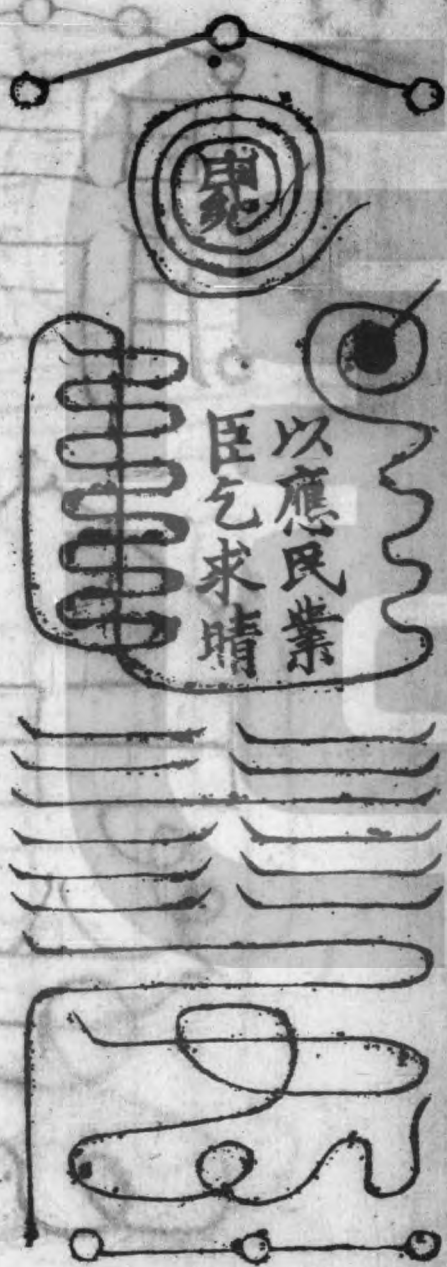 以應民業
臣乞求晴